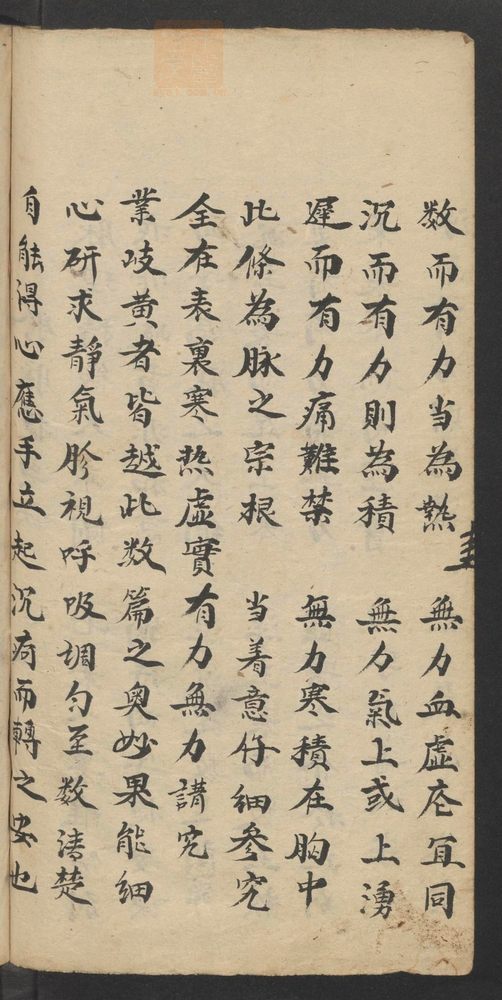 数而有力当為熱 無力血虛 宜同
沉而有力則為積 無力氣上或上湧
遲而有力痛難禁 無力寒積在胸中
此條為脉之宗根 当着意仔細參究
全在表裏寒热虛實有力無力講究
業岐黄者皆越此数篇之奥妙果能細
心研求靜氣胗視呼吸調勻至数清楚
自能得心應手立起沉疴而轉之安也